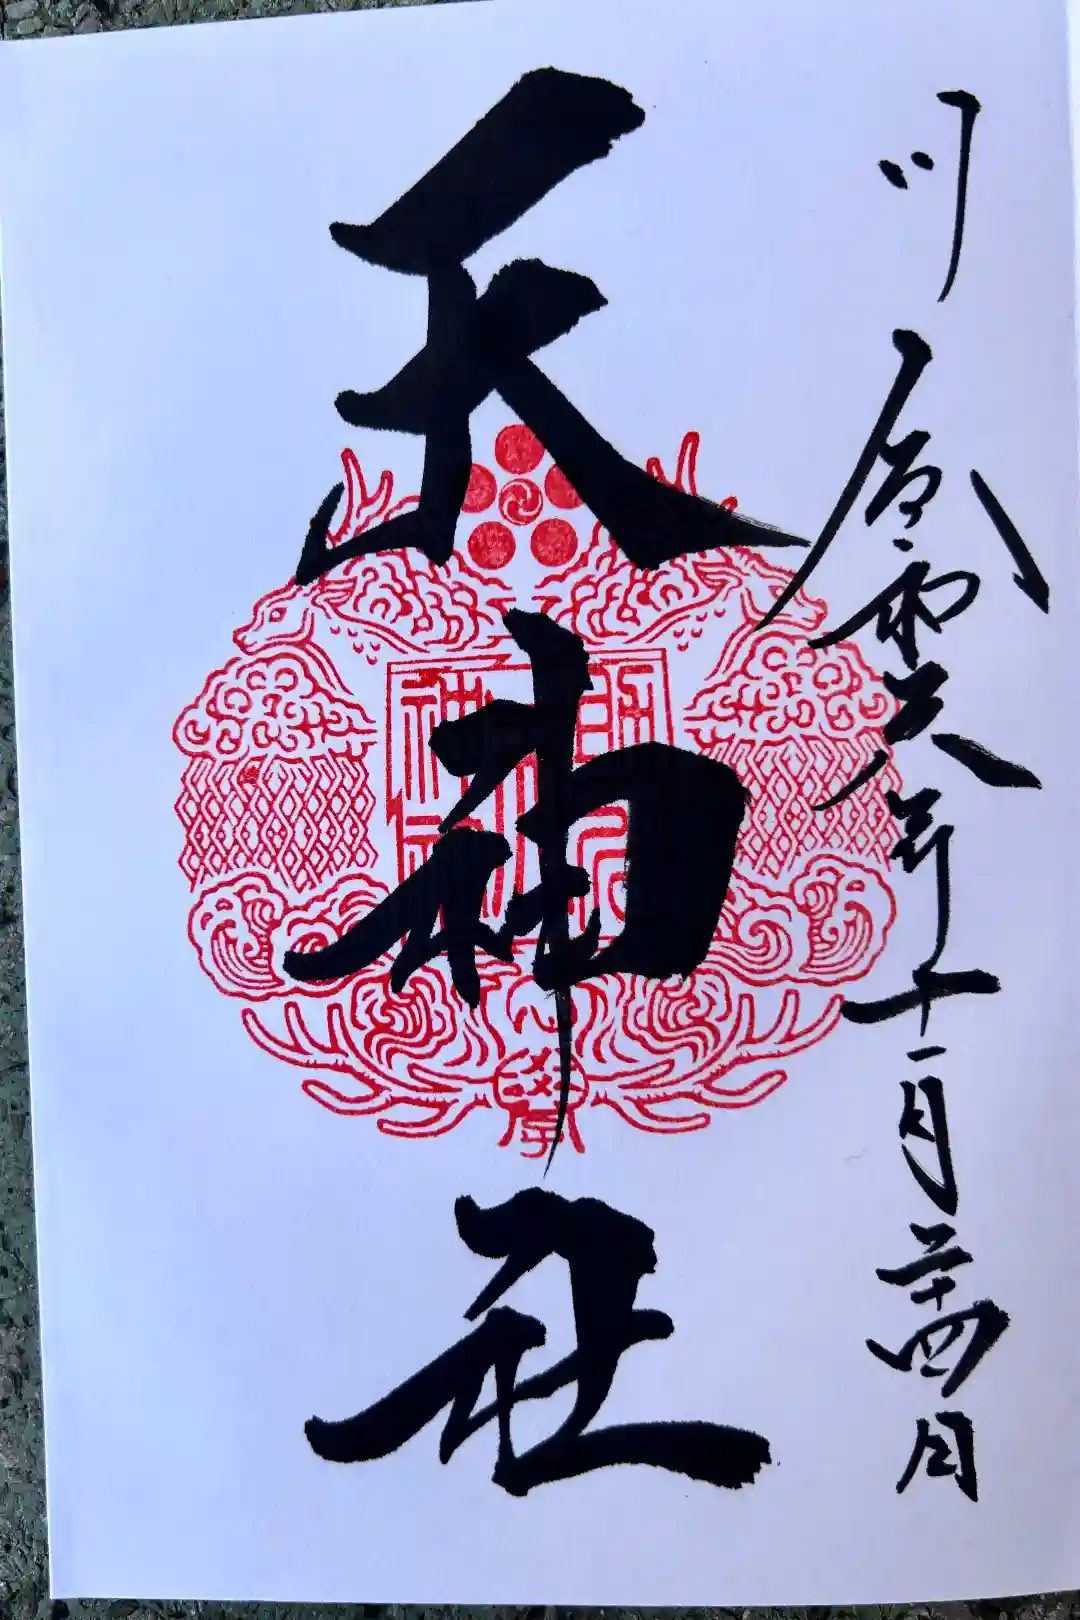 川 令和六年十一月二十四日
天神社